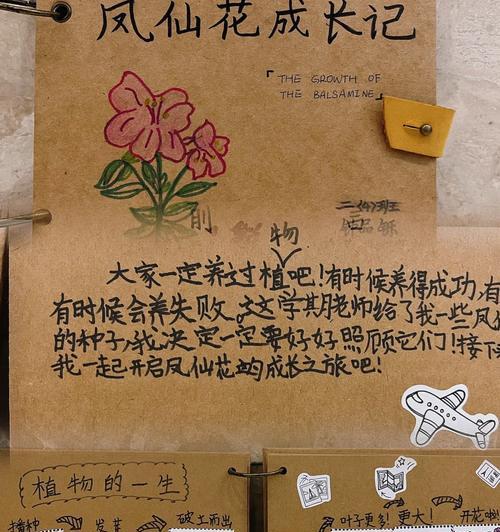 凤仙花成长记
「THE GROWTH OF
THE BALSAMINE」
二(4)班
前
物
大家一定养过植吧!有时候养得成功,有
有时候会养失败。这学期老师给了我一些凤仙
的种子,我决定一定要好好照顾它们!接下
我一起开启凤仙花的成长之旅吧!
植物的一生
播种 发芽 破土而出
叶子更多!更大! 开花啦